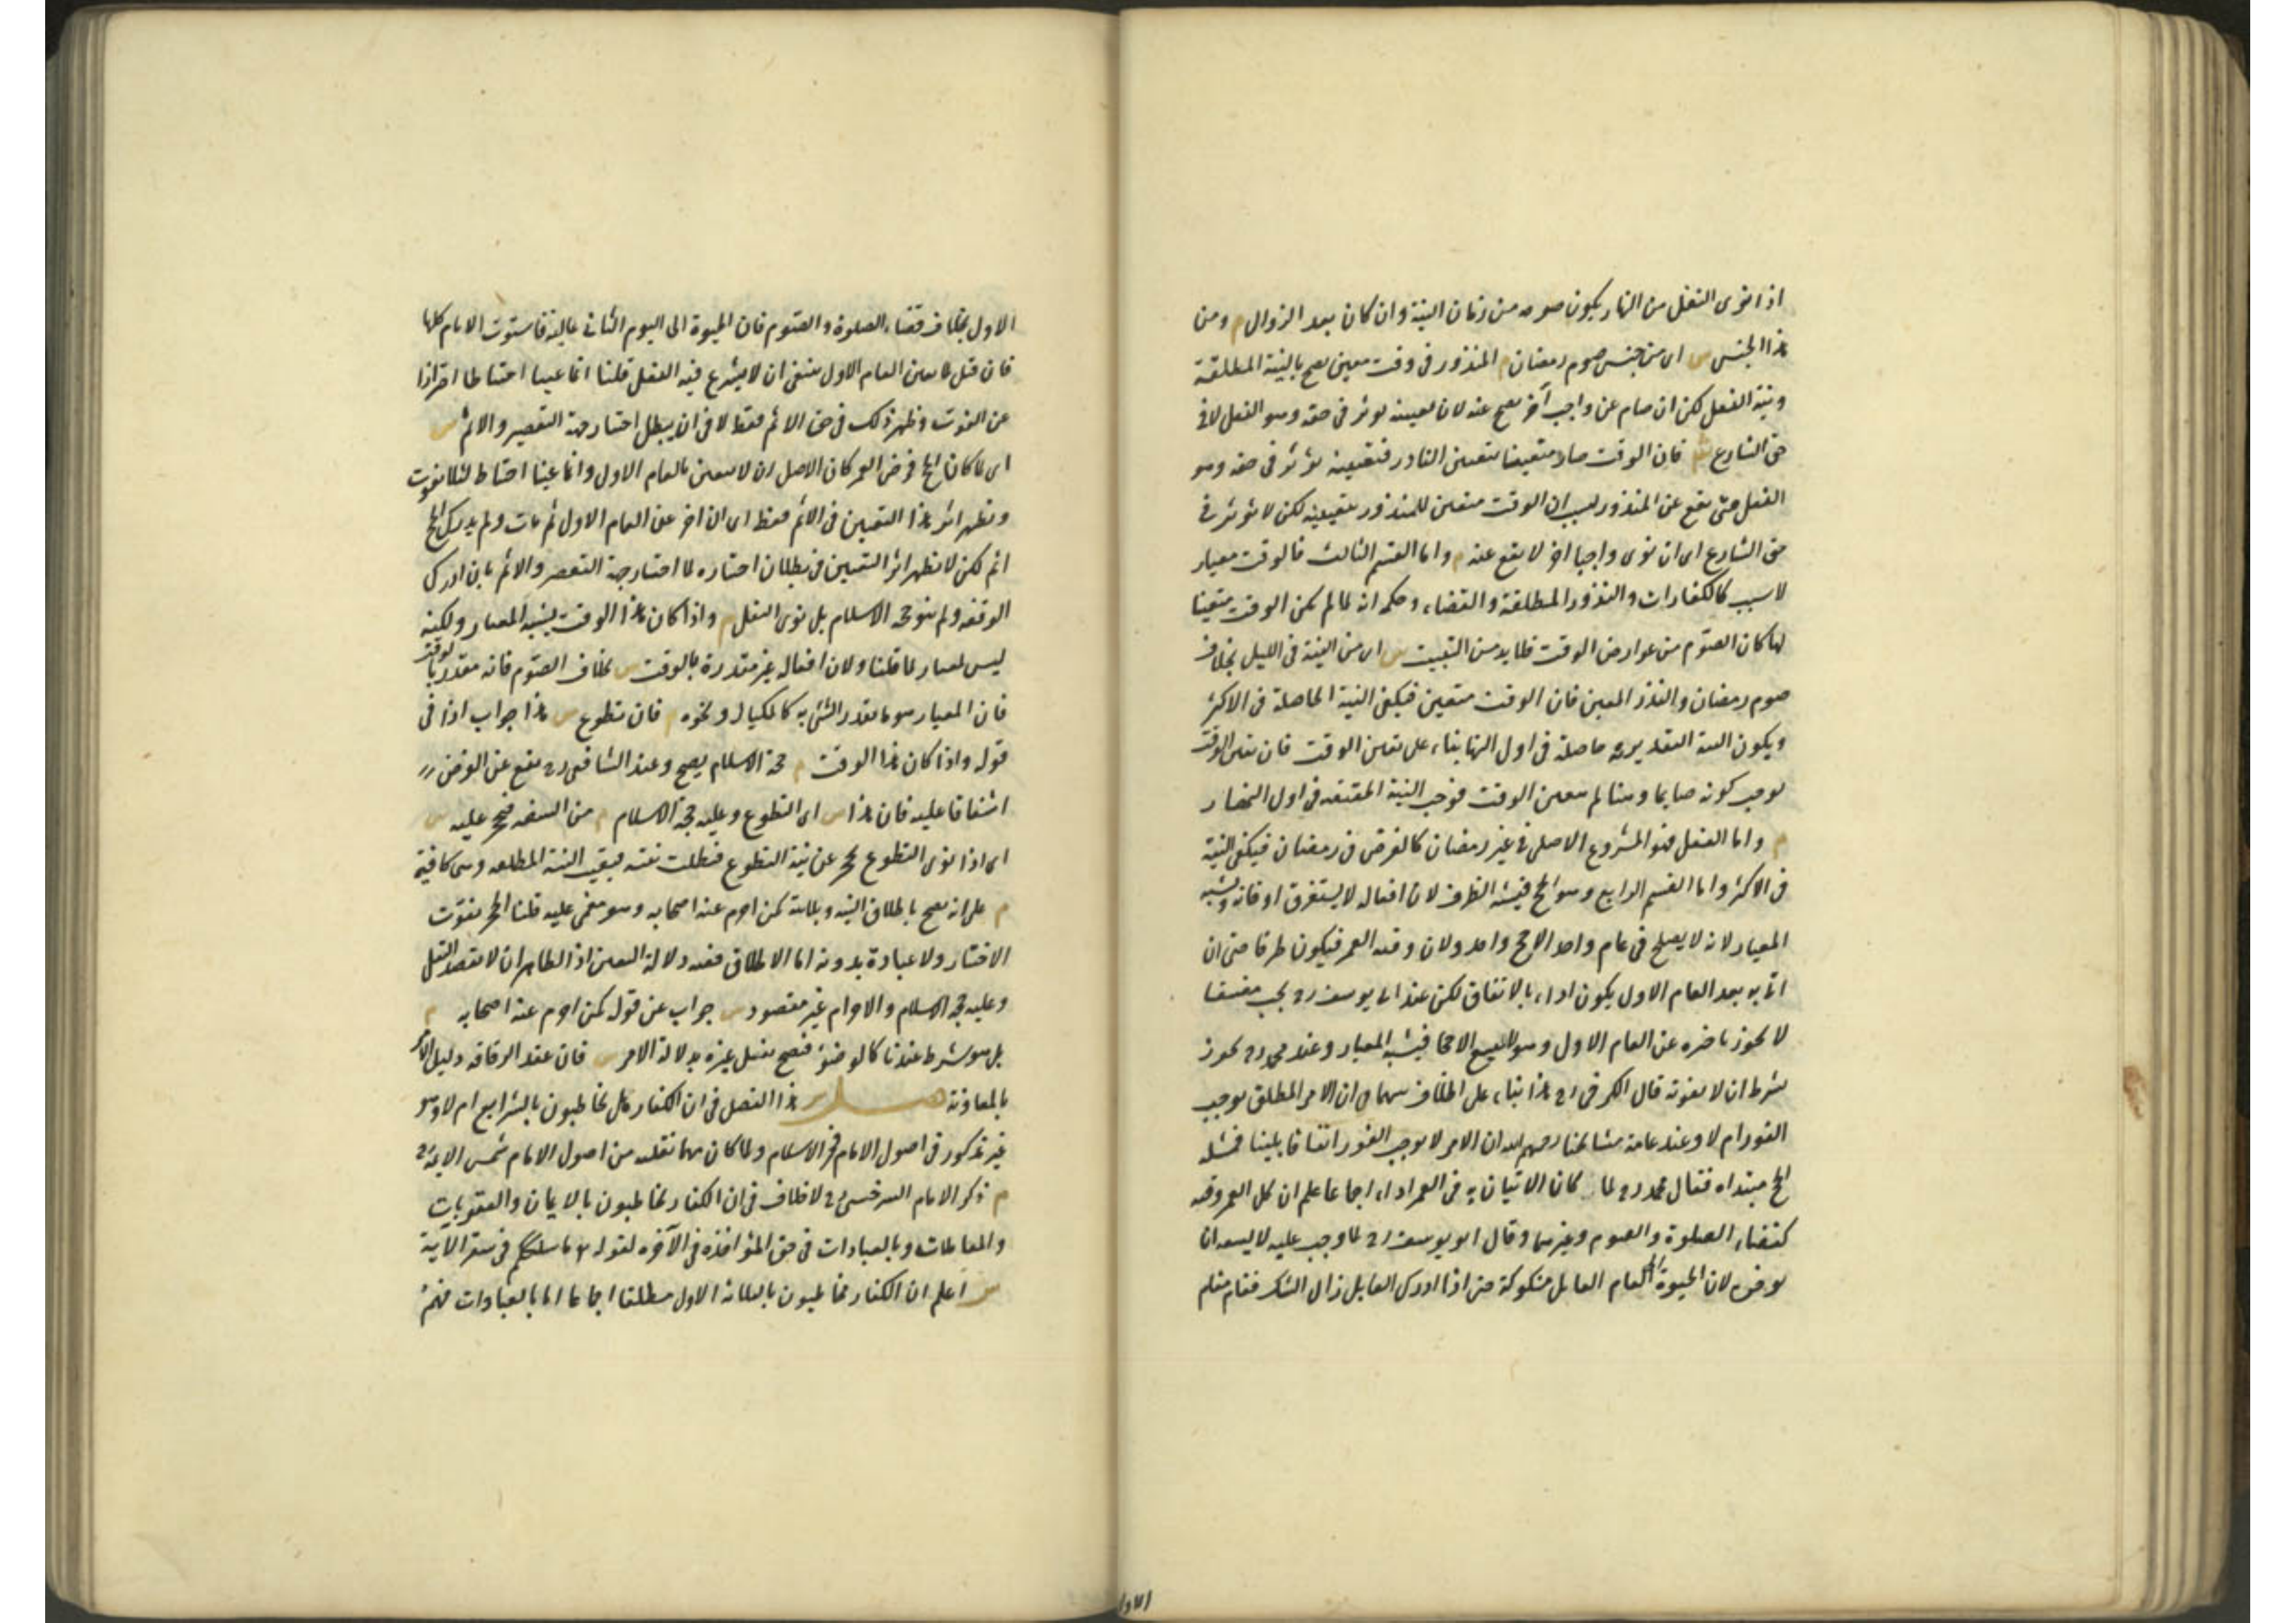 اذا نوى النفل من النهار يكون صومه من زمان النية وان كان بعد الزوال م ومن
هذا الجنس ش اى من جنس صوم رمضان م المنذور فى وقت معين يصح بالنية المطلقة
ونية النفل لكن ان صام عن واجب آخر يصح عنه لان تعيينه يوثر فى حقه وهو النفل لا فى
حق الشارع ش فان الوقت صار متعينا بتعيين الناذر فتعيينه يؤثر فى حقه وهو
النفل حتى يقع عن المنذور لسبب ان الوقت متعين للمنذور بتعيينه لكن لا يؤثر فى
حق الشارع اى ان نوى واجبا اخر لا يقع عنه م واما القسم الثالث فالوقت معيار
لا سبب كالكفارات والنذور المطلقة والقضاء وحكمه انه لما لم يكن الوقت متعينا
لها كان الصوم من عوارض الوقت فلا بد من التبييت ش اى من النية فى الليل بخلاف
صوم رمضان والنذر المعين فان الوقت متعين فيكفى النية الحاصلة فى الاكثر
ويكون النية التقديرية حاصلة فى اول النهار بناء على تعين الوقت فان تعين الوقت
يوجب كونه صايما وهنا لم يتعين الوقت فوجب النية المقيقة فى اول النهار
م واما النفل فهو المشروع الاصلى فى غير رمضان كالفرض فى رمضان فيكفى النية
فى الاكثر واما القسم الرابع وهو الحج فيشبه الظرف لان افعاله لا يستغرق اوقاته ويشبه
المعيار لانه لا يصلح فى عام واحد الا حج واحد ولان وقته العمر فيكون ظرفا حتى ان
اتى به بعد العام الاول يكون اداء بالاتفاق لكن عند ابى يوسف رح يجب مضيقا
لا يجوز تاخيره عن العام الاول وهو لا يسع الا حجا فيشبه المعيار وعند محمد رح يجوز
بشرط ان لا يفوته قال الكرخى رح هذا بناء على الخلاف بينهما فى ان الامر المطلق يوجب
الفور ام لا وعند عامة مشايخنا رحمهم الله ان الامر لا يوجب الفور اتفاقا بيننا فمسئلة
الحج مبتداه فقال محمد رح لما كان الاتيان به فى العمر اداء اجماعا علم ان كل العمر وقته
كقضاء الصلوة والصوم وغيرهما وقال ابو يوسف رح لما وجب عليه لا يسعه ان
يوخره لان الحيوة الى العام القابل مشكوكة حتى اذا ادرك القابل زال الشك فقام مقام
الاول
الاول بخلاف قضاء الصلوة والصوم فان الحيوة الى اليوم الثانى غالبة فاستوت الايام كلها
فان قيل لما تعين العام الاول ينبغى ان لا يشرع فيه النفل قلنا انما عينا احتياطا احترازا
عن الفوت وظهر ذلك فى حق الاثم فقط لا فى ان يبطل اختياره جهة التقصير والاثم ش
اى لما كان الحج فرض العمر كان الاصل ان لا يتعين بالعام الاول وانما عينا احتياطا لئلا يفوت
ويظهر اثر هذا التعيين فى الاثم فقط اى ان اخر عن العام الاول ثم مات ولم يدرك الحج
اثم لكن لا يظهر اثر التعيين فى بطلان اختياره لما اختار جهة التقصير والاثم بان ادرك
الوقفة ولم ينو حجة الاسلام بل نوى النفل م واذا كان هذا الوقت يشبه المعيار ولكنه
ليس بمعيار لما قلنا ولان افعاله غير مقدرة بالوقت ش بخلاف الصوم فانه مقدر بالوقت
فان المعيار هو ما يقدر الشئ به كالمكيال ونحوه م فان تطوع ش هذا جواب اذا فى
قوله واذا كان هذا الوقت م وعليه حجة الاسلام يصح وعند الشافعى رح يقع عن الفرض
اشفاقا عليه فان هذا ش اى التطوع وعليه حجة الاسلام م من السفه فحجر عليه ش
اى اذا نوى التطوع يحجر عن نية التطوع فبطلت نيته فبقيت النية المطلقة وهى كافية
م على انه يصح باطلاق النية وبلا نية كمن احرم عنه اصحابه وهو مغمى عليه قلنا الحجر يفوت
الاختيار ولا عبادة بدونه اما الاطلاق ففيه دلالة التعيين اذ الظاهر ان لا يقصد النفل
وعليه حجة الاسلام والاحرام غير مقصود ش جواب عن قوله كمن احرم عنه اصحابه م
بل هو شرط عندنا كالوضؤ فيصح بفعل غيره بدلالة الامر ش فان عقد الرفاقة دليل الامر
بالمعاونة فصل ش هذا الفصل فى ان الكفار هل يخاطبون بالشرايع ام لا وهو
غير مذكور فى اصول الامام فخر الاسلام ولما كان مهما نقلته من اصول الامام شمس الايمة رح
م ذكر الامام السرخسى رح لا خلاف فى ان الكفار يخاطبون بالايمان والعقوبات
والمعاملات وبالعبادات فى حق المؤاخذة فى الآخرة لقوله تع ما سلككم فى سقر الآية
ش اعلم ان الكفار مخاطبون بالثلاثة الاول مطلقا اجماعا اما بالعبادات فهم